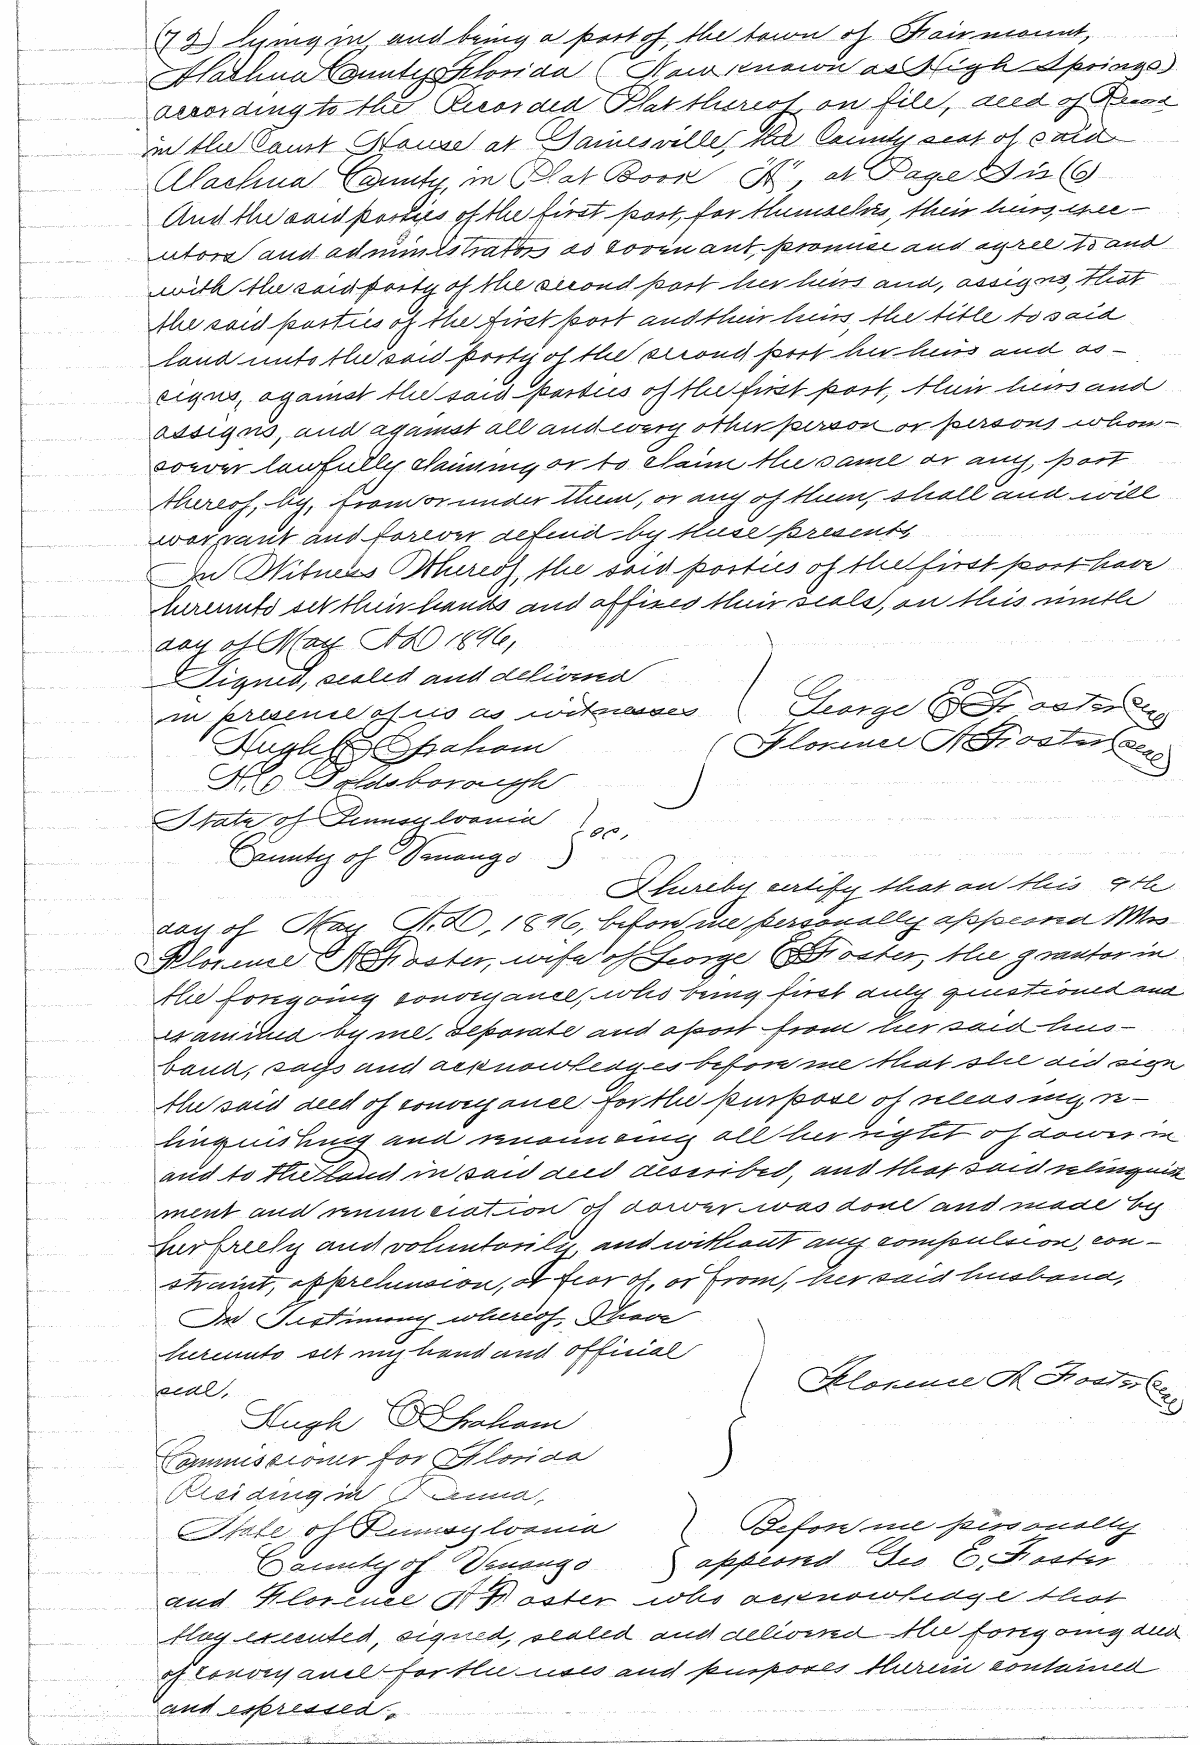 (72) lying in, and being a part of, the town of Fairmount,
Alachua County, Florida (Now known as High Springs)
according to the Recorded Plat thereof on file, deed of Record
in the Court House at Gainesville, the County seat of said
Alachua County, in Plat Book "A", at Page Six (6)
And the said parties of the first part, for themselves, their heirs, exec-
utors and administrators do covenant, promise and agree to and
with the said party of the second part her heirs and, assigns, that
the said parties of the first part and their heirs, the title to said
land unto the said party of the second part her heirs and as-
signs, against the said parties of the first part, their heirs and
assigns, and against all and every other person or persons whom-
soever lawfully claiming or to claim the same or any, part
thereof, by, from or under them, or any of them, shall and will
warrant and forever defend by these presents,
In Witness Whereof, the said parties of the first part have
hereunto set their hands and affixed their seals, on this ninth
day of May A.D 1896,
Signed, sealed and delivered
in presence of us as witnesses
George E Foster (Seal)
Hugh C Graham
Florence A Foster (Seal)
H.C Goldsborough
State of Pennsylvania
ss,
County of Venango
I hereby certify that on this 9th
day of May A.D, 1896, before me personally appeared Mrs
Florence A Foster, wife of George E Foster, the grantor in
the foregoing conveyance, who being first duly questioned and
examined by me, separate and apart from her said hus-
band, says and acknowledges before me that she did sign
the said deed of conveyance for the purpose of releasing, re-
linquishing and renouncing all her right of dower in
and to the land in said deed described, and that said relinquish
ment and renunciation of dower was done and made by
her freely and voluntarily, and without any compulsion, con-
straint, apprehension, or fear of, or from, her said husband,
In Testimony whereof, I have
hereunto set my hand and official
seal,
Florence A Foster (Seal)
Hugh C Graham
Commissioner for Florida
Residing in Penna,
State of Pennsylvania
Before me personally
County of Venango
appeared Geo E. Foster
and Florence A Foster who acknowledge that
they executed, signed, sealed and delivered the foregoing deed
of conveyance for the uses and purposes therein contained
and expressed.